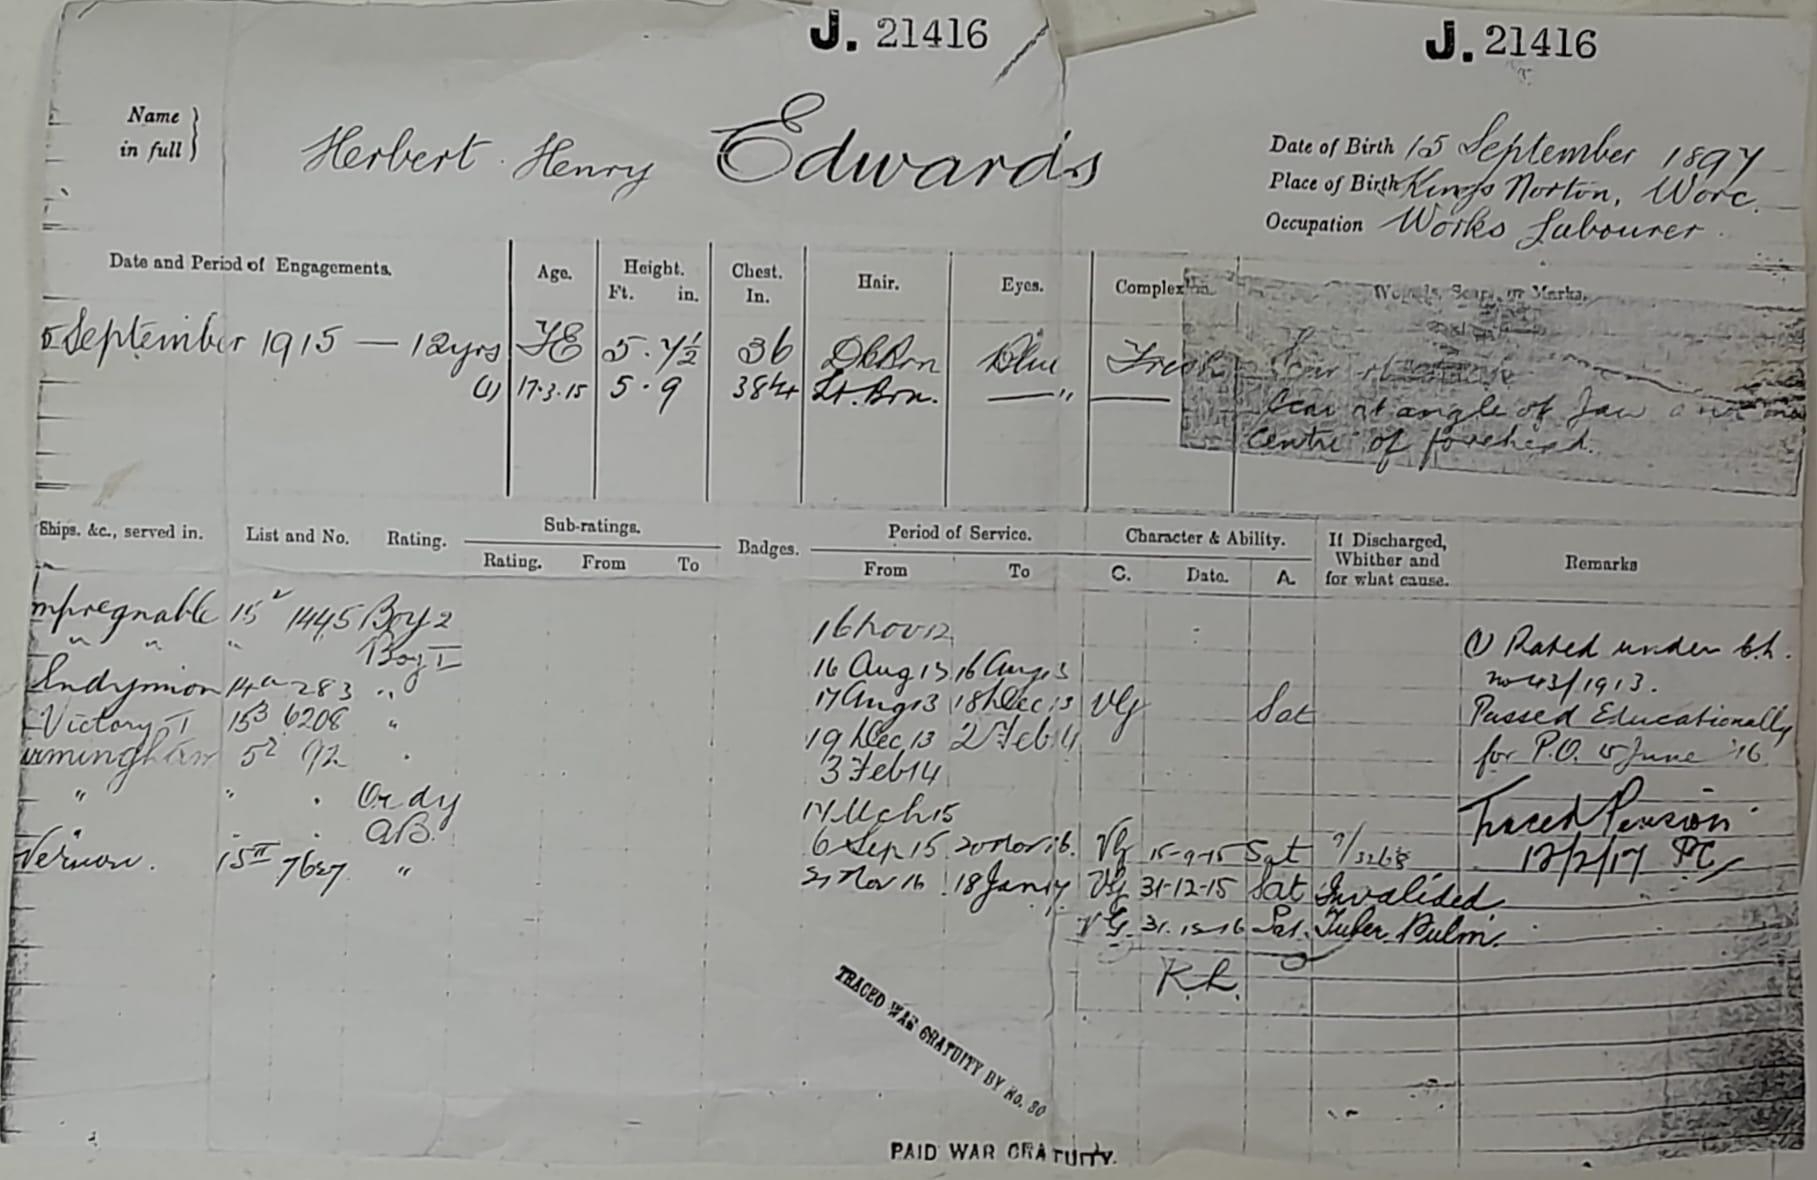 J. 21416 J. 21416
Name in full } Herbert Henry Edwards
Date of Birth 15 September 1897
Place of Birth Kings Norton, Worc.
Occupation Works Labourer
Date and Period of Engagements. Age. Height. Ft. in. Chest. In. Hair. Eyes. Complexion. Wounds, Scars, or Marks.
5 September 1915 — 12yrs 5. 7½ 36 Dk Brn Blue Fresh Scar
(1) 17.3.15 5. 9 38¼ Lt. Brn. — " —
Scar at angle of Jaw
centre of forehead.
Ships, &c., served in. List and No. Rating. Sub-ratings. Rating. From To Badges. Period of Service. From To Character & Ability. C. Date. A. If Discharged, Whither and for what cause. Remarks
mpregnable 15² 1445 Boy 2 16 Nov 12
" " " Boy I 16 Aug 13 16 Aug 13
Endymion 14a 283 " 17 Aug 13 18 Dec 13 VG Sat
Victory I 15³ 6208 " 19 Dec 13 2 Feb 14
irmingham 5² 92 . 3 Feb 14
" " . Ordy 17 Mch 15
AB. 6 Sep 15 20 Nov 16. VG 15-9-15 Sat
Vernon. 15II 7627 " 21 Nov 16 18 Jan 17 VG 31-12-15 Sat Invalided.
VG. 31.12.16 Sat. Tuber. Pulm.
R.L.
(1) Rated under
no 43/1913.
Passed Educationally
for P.O. 5 June '16
Traced Pension
12/2/17
TRACED WAR GRATUITY BY No. 30
PAID WAR GRATUITY.